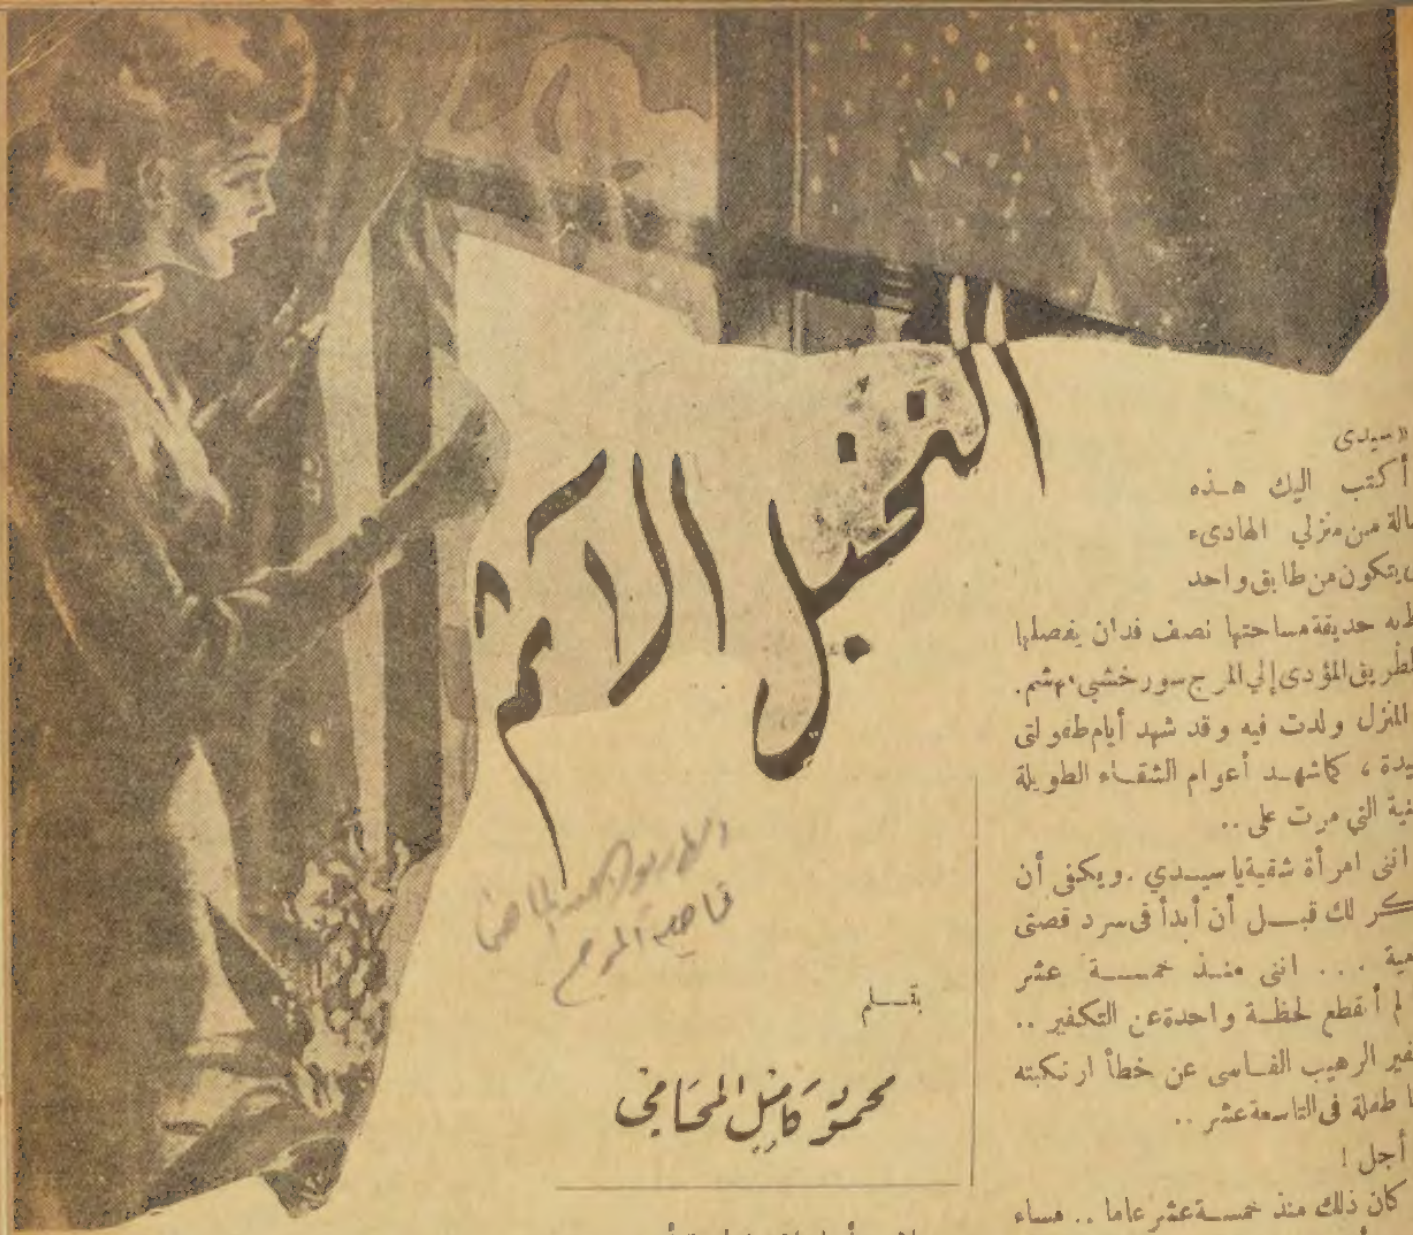 النخيل الآثم
قاهية المرج
بقلم
محمود كامل المحامى
«سيدى
أكتب اليك هذه
الة من منزلي الهادىء
يتكون من طابق واحد
حديقة مساحتها نصف فدان يفصلها
لطريق المؤدى إلي المرج سور خشبي مهشم.
المنزل ولدت فيه وقد شهد أيام طفولتى
يدة ، كما شهد أعوام الشقاء الطويلة
فية التي مرت على ..
اننى امرأة شقية يا سيدي . ويكفى أن
كر لك قبل أن أبدأ فى سرد قصتى
مية ... اننى منذ خمسة عشر
لم أنقطع لحظة واحدة عن التكفير ..
فير الرهيب القاسى عن خطأ ارتكبته
ا طفلة فى التاسعة عشر ..
أجل !
كان ذلك منذ خمسة عشر عاما .. مساء